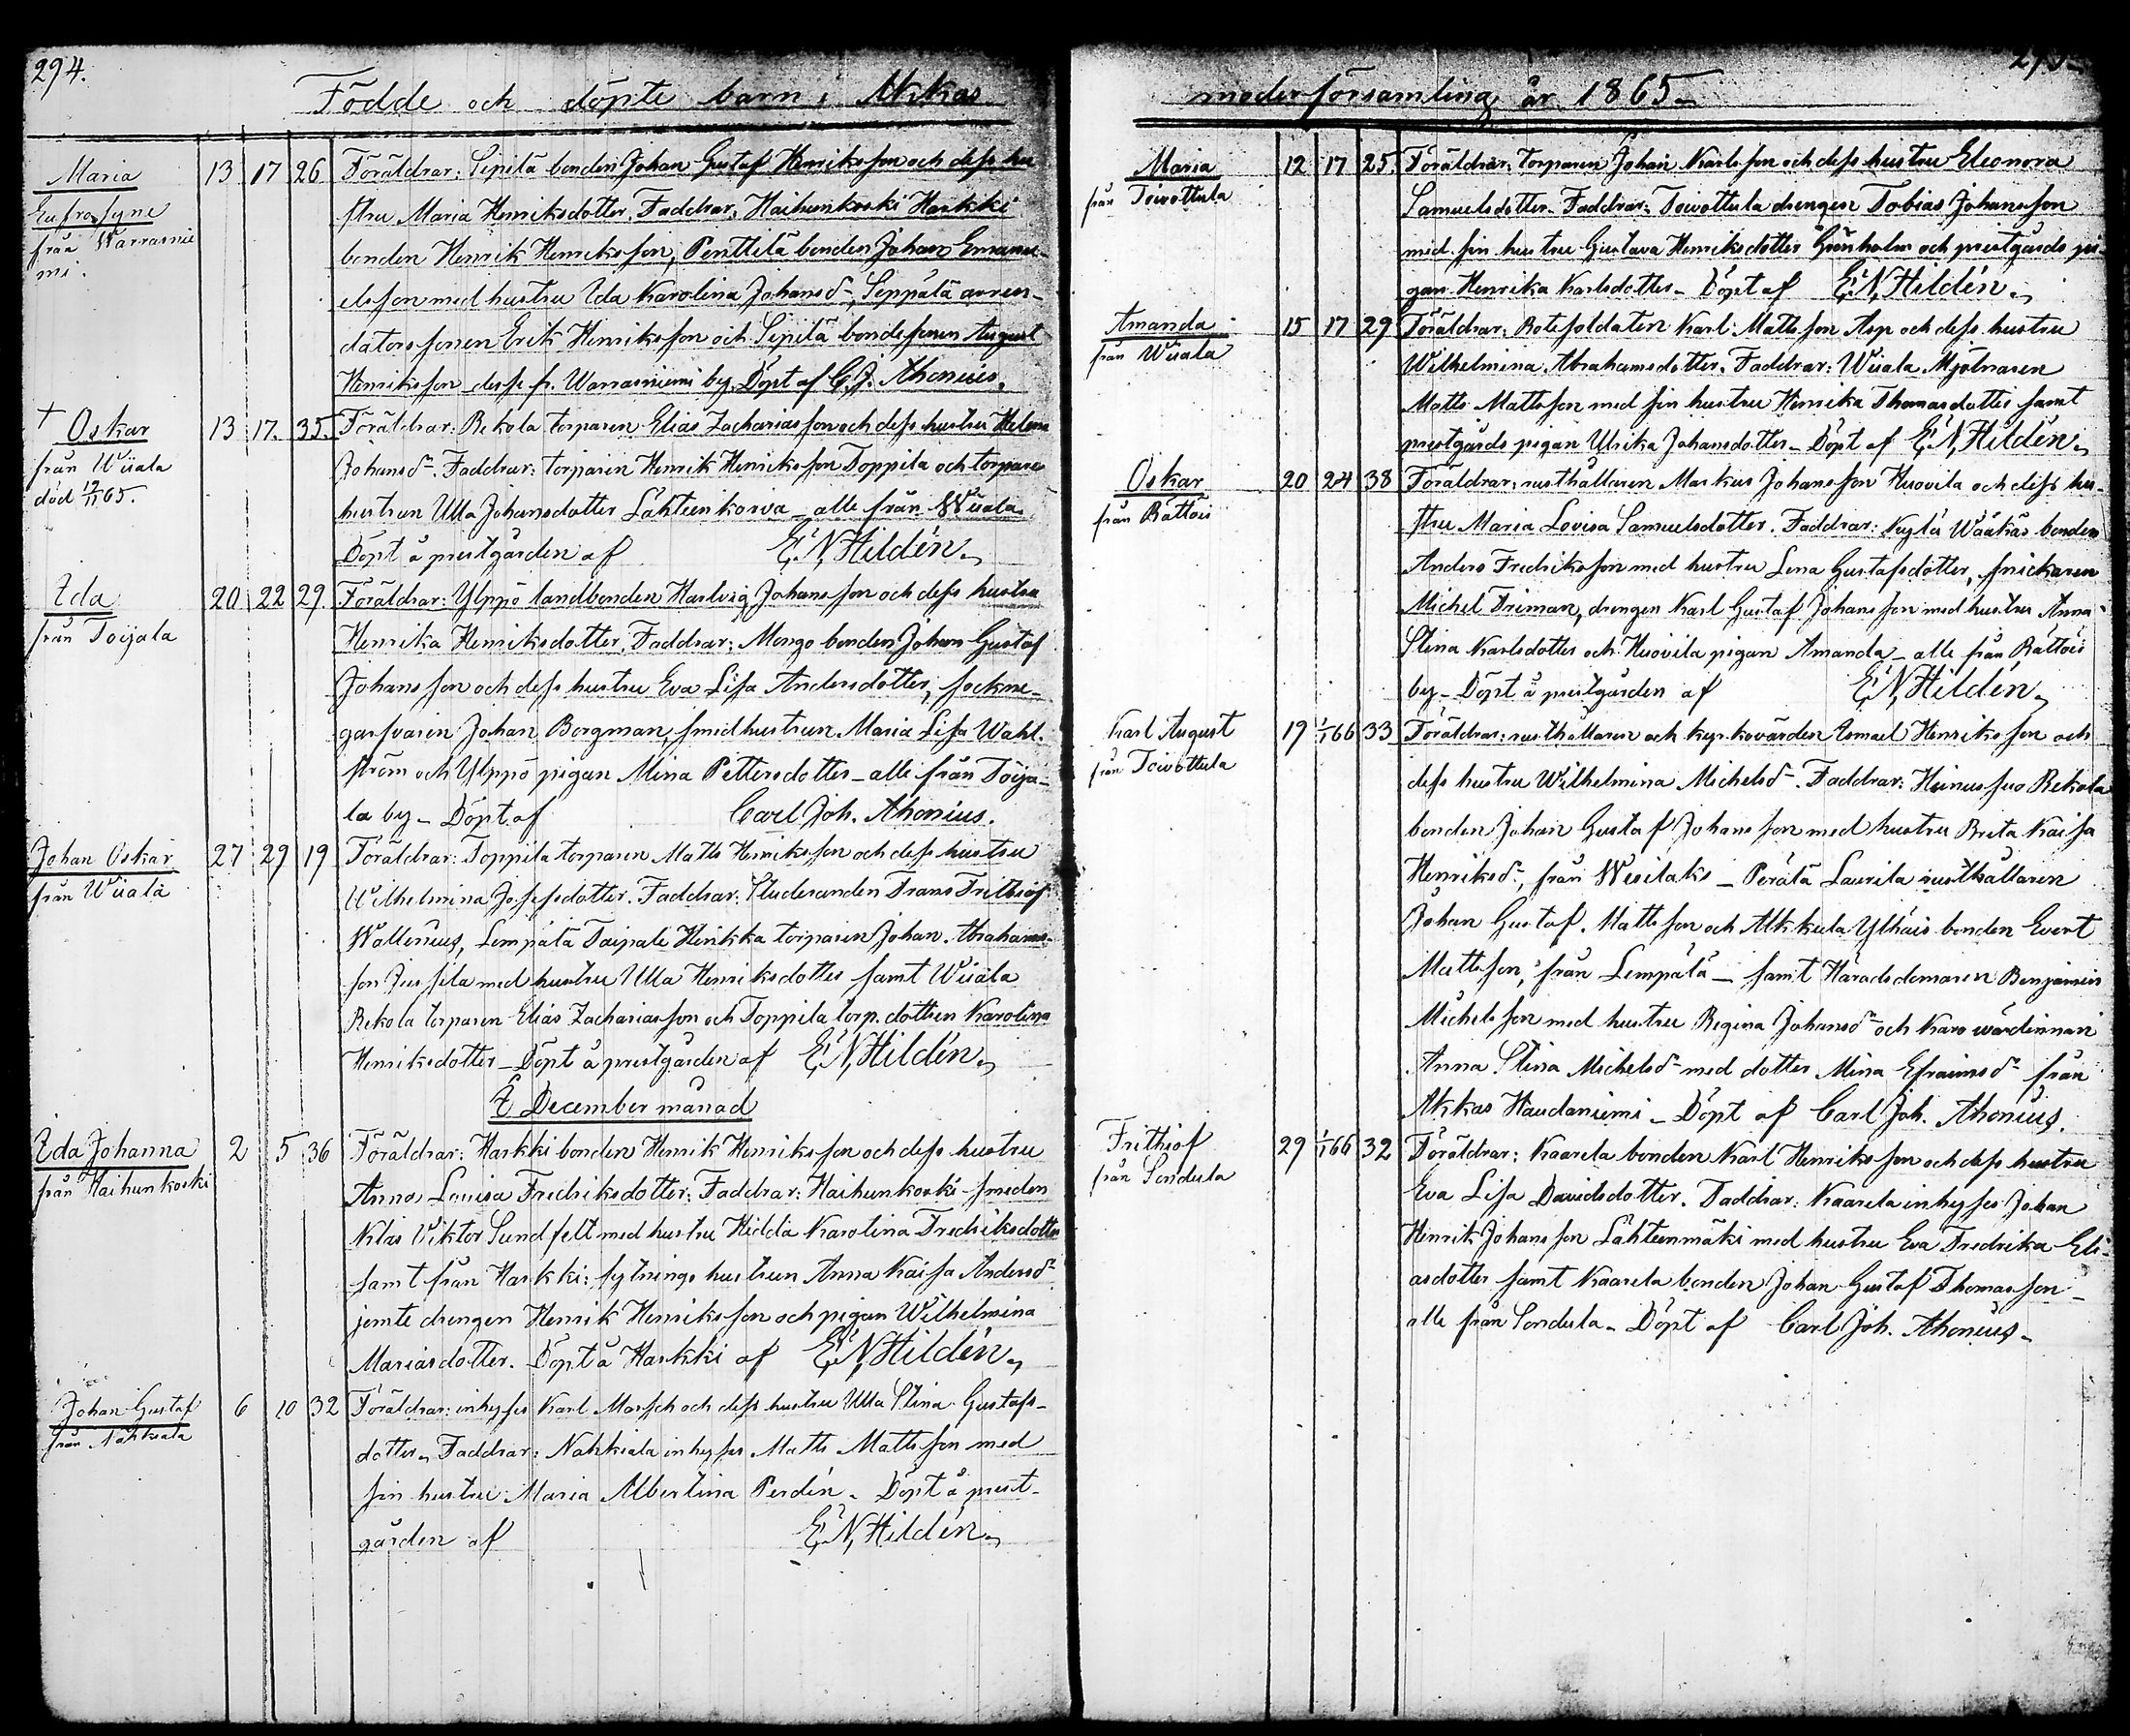 294.
Födde och döpte barn i Akkas
Maria
Eufrosyne
från Warrasnie
mi.
13 17 26
Föräldrar: Sipilä bonden Johan Gustaf Henriksson och dess hu
stru Maria Henriksdotter. Faddrar: Haihunkoski Harkki
bonden Henrik Henriksson, Penttilä bonden Johan Emanu-
elsson med hustru Ida Karolina Johansd:r, Seppälä arren-
datorssonen Erik Henriksson och Sipilä bondesonen August
Henriksson dess fr. Warrasniemi by. Döpt af C. J. Ahonius.
† Oskar
från Wiiala
död 12/11 65.
13 17. 35.
Föräldrar: Rekola torparen Elias Zachariasson och dess hustru Helena
Johansd:r. Faddrar: torparen Henrik Henriksson Toppila och torpare
hustrun Ulla Johansdotter Lähteenkorva – alle från Wiiala.
Döpt å prestgården af E. N. Hildén.
Ida
från Toijala
20 22 29
Föräldrar: Ylppö landbonden Hartvig Johansson och dess hustru
Henrika Henriksdotter. Faddrar: Mongo bonden Johan Gustaf
Johansson och dess hustru Eva Lisa Andersdotter, sockne-
garfvaren Johan Borgman, smidhustrun Maria Lisa Wahl-
ström och Ylppö pigan Mina Pettersdotter – alle från Toija-
la by – Döpt af Carl Joh. Ahonius.
Johan Oskar
från Wiiala
27 29 19
Föräldrar: Toppila torparen Matts Henriksson och dess hustru
Wilhelmina Josefsdotter. Faddrar: Studeranden Frans Frithiof
Wallenius, Lempälä Taipale Heikka torparen Johan Abrahams-
son Jussila med hustru Ulla Henriksdotter samt Wiiala
Rekola torparen Elias Zachariasson och Toppila torp. dottren Karolina
Henriksdotter – Döpt å prestgården af E. N. Hildén.
I December månad
Ida Johanna
från Haihunkoski
2 5 36
Föräldrar: Harkki bonden Henrik Henriksson och dess hustru
Anna Lovisa Fredriksdotter: Faddrar: Haihunkoski smeden
Klas Viktor Sundfelt med hustru Hedda Karolina Fredriksdotter
samt från Harkki: sytnings hustrun Anna Kaisa Andersd:r
jemte drengen Henrik Henriksson och pigan Wilhelmina
Mariasdotter. Döpt å Harkki af E. N. Hildén.
Johan Gustaf
från Nahkiala
6 10 32
Föräldrar: inhyses Karl Marsch och dess hustru Ulla Stina Gustafs-
dotter. Faddrar: Nahkiala inhyses Matts Mattsson med
sin hustru Maria Albertina Perdén. Döpt å prest-
gården af E. N. Hildén.
295
moderförsamling år 1865.
Maria
från Toivottula
12 17 25.
Föräldrar: torparen Johan Karlsson och dess hustru Eleonora
Samuelsdotter. Faddrar: Toivottula drengen Tobias Johansson
med sin hustru Gustava Henriksdotter Grönholm och prestgårds pi-
gan Henrika Karlsdotter – Döpt af E. N. Hildén.
Amanda
från Wiiala
15 17 29
Föräldrar: Rotesoldaten Karl Mattsson Asp och dess hustru
Wilhelmina Abrahamsdotter. Faddrar: Wiiala Mjölnaren
Matts Mattsson med sin hustru Henrika Thomasdotter samt
prestgårds pigan Ulrika Johansdotter – Döpt af E. N. Hildén.
Oskar
från Rättöis
20 24 38
Föräldrar: rusthållaren Markus Johansson Huovila och dess hu-
stru Maria Lovisa Samuelsdotter. Faddrar: Nuglä Wääkäs bonden
Anders Fredriksson med hustru Lena Gustafsdotter, snickaren
Michel Friman, drengen Karl Gustaf Johansson med hustru Anna
Stina Karlsdotter och Huovila pigan Amanda – alle från Rättöis
by – Döpt å prestgården af E. N. Hildén.
Karl August
från Toivottula
19 1/1 66 33
Föräldrar: rusthållaren och kyrkovärden Asmael Henriksson och
dess hustru Wilhelmina Michelsd:r. Faddrar: Heinussuo Rekola
bonden Johan Gustaf Johansson med hustru Brita Kaisa
Henriksd:r, från Wesilaks – Perälä Laurila rusthållaren
Johan Gustaf Mattsson och Alkkula Ylhäis bonden Evert
Mattsson, från Lempälä – samt Häradsdomaren Benjamin
Michelsson med hustru Regina Johansd:r och Karo wärdinnan
Anna Stina Michelsd:r med dotter Mina Efraimsd:r från
Akkas Haudaniemi – Döpt af Carl Joh. Ahonius.
Frithiof
från Sondula
29 1/1 66 32
Föräldrar: Kaarela bonden Karl Henriksson och dess hustru
Eva Lisa Davidsdotter. Faddrar: Kaarela inhyses Johan
Henrik Johansson Lähteenmäki med hustru Eva Fredrika Eli-
asdotter samt Kaarela bonden Johan Gustaf Thomasson –
alle från Sondula – Döpt af Carl Joh. Ahonius.